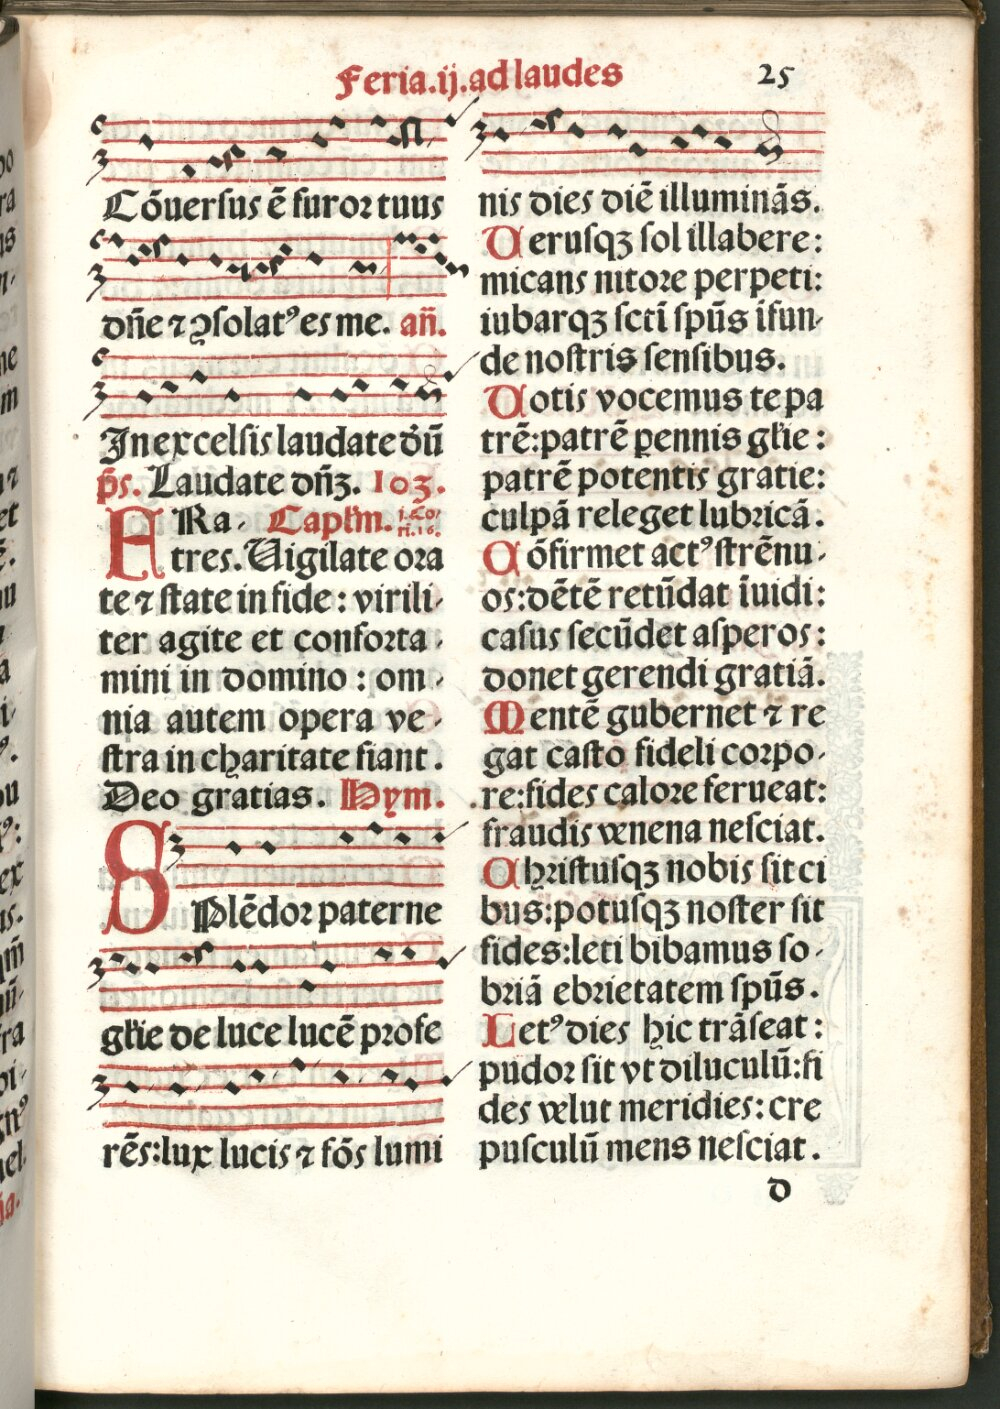 Feria.ij.ad laudes 25
Cōuersus ē furor tuus
dñe ⁊ ꝯsolatꝰ es me. añ.
In excelsis laudate dn̄ū
p̄s. Laudate dñꝫ. 103.
FRa. Capl'm. 1.Co.
tres. Uigilate ora ri.16.
te ⁊ state in fide : virili-
ter agite et conforta-
mini in domino : om-
nia autem opera ve-
stra in charitate fiant.
Deo gratias. Hym.
SPlēdor paterne
gl'ie de luce lucē profe
rēs:lux lucis ⁊ fōs lumi
nis dies diē illuminās.
Uerusqꝫ sol illabere:
micans nitore perpeti:
iubarqꝫ scti spūs īfun-
de nostris sensibus.
Uotis vocemus te pa
trē:patrē ꝑennis gl'ie:
patrē potentis gratie:
culpā releget lubricā.
Cōfirmet actꝰ strēnu-
os:dētē retūdat īuidi:
casus secūdet asperos:
donet gerendi gratiā.
Mentē gubernet ⁊ re
gat casto fideli corpo-
re:fides calore ferueat:
fraudis venena nesciat.
Christusqꝫ nobis sit ci
bus:potusqꝫ noster sit
fides:leti bibamus so-
briā ebrietatem spūs.
Letꝰ dies hic trāseat:
pudor sit vt diluculū:fi
des velut meridies: cre
pusculū mens nesciat.
d